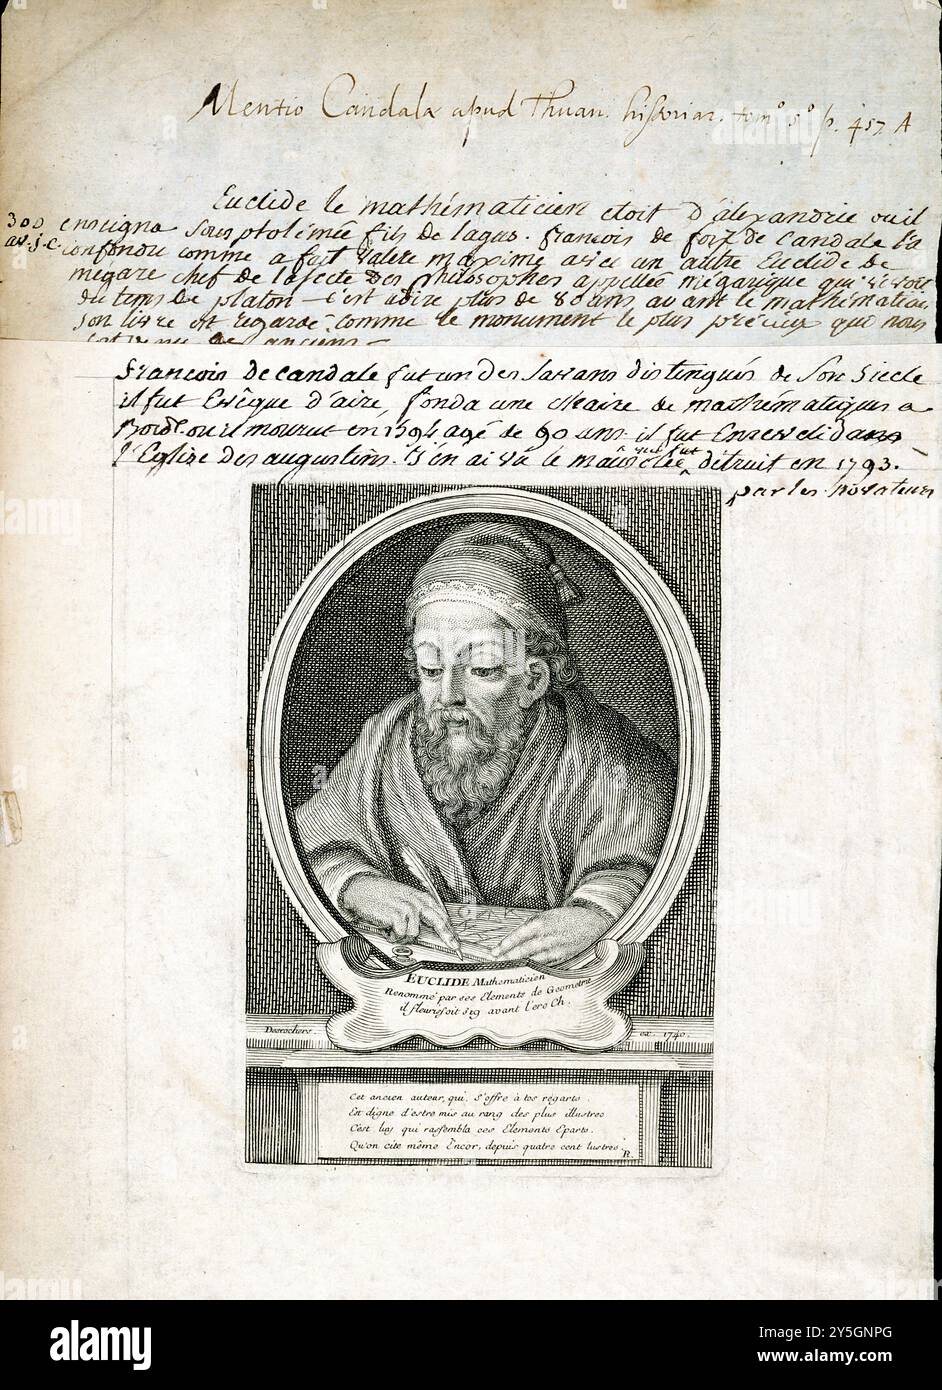 Mentio Candalæ apud Thuan. historiar. tom° 5° p. 457. A
Euclide le mathématicien étoit d'alexandrie ou il
300 enseigna sous ptolémée fils de lagus. françois de foix de Candale l'a
av. j. c. confondu comme a fait valere maxime avec un autre Euclide de
megare chef de la secte des philosophes appellée mégarique qui vivoit
du tems de platon - c'est a dire plus de 80 ans avant le mathématicien
son livre est regardé comme le monument le plus précieux qui nous
de anciens -
françois de candale fut un des savans distingués de son siecle
il fut Evêque d'aire, fonda une chaire de mathématiques a
Bord. ou il mourut en 1594 agé de 90 ans. il fut Enseveli dans
l'Eglise des augustins. j'en ai vû le détruit en 1793.
par les novateurs
EUCLIDE Mathematicien
Renommé par ses Elements de Geometrie
il fleurissoit 319 avant l'ere Ch.
Desrochers. ex. 1740.
Cet ancien auteur, qui s'offre à tes régarts.
Est digne d'estre mis au rang des plus illustres
C'est luy qui rassembla ces Elements Eparts.
Qu'on cite même Encor, depuis quatre cent lustres.
R.
alamy
Image ID: 2Y5GNPG
www.alamy.com